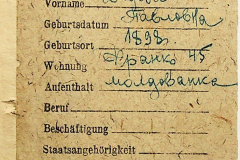 Vorname
Павловна
Geburtsdatum 1898
Geburtsort Франко 45
Wohnung молдованка
Aufenthalt
Beruf
Beschäftigung
Staatsangehörigkeit